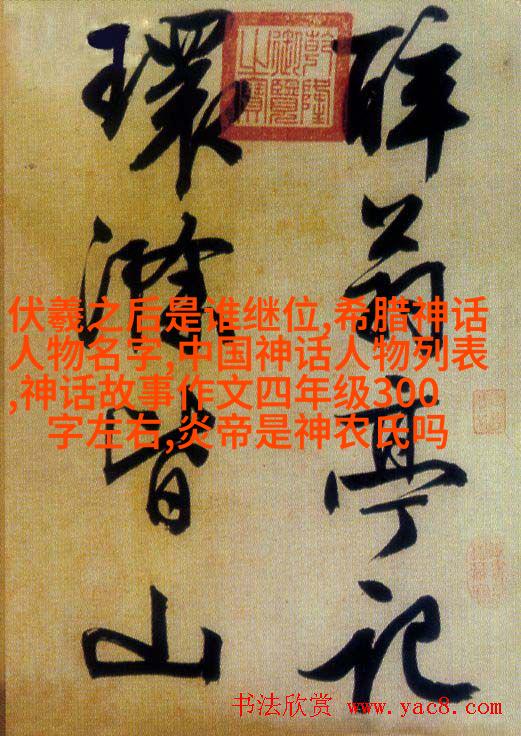 醉翁亭记
環滁皆山
乾隆
御覽
之寶
伏羲之后是谁继位,希腊神话
人物名字,中国神话人物列表
,神话故事作文四年级300
字左右,炎帝是神农氏吗
书法欣赏 www.yac8.com